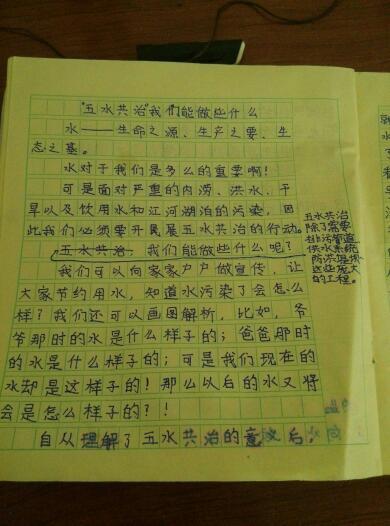 "五水共治"我们能做些什么
水——生命之源、生产之要、生
态之基。
水对于我们是多么的重要啊!
可是面对严重的内涝、洪水、干
旱以及饮用水和江河湖泊的污染,因
此我们必须要开民展五水共治的行动。
五水共治,我们能做些什么呢?
我们可以向家家户户做宣传,让
大家节约用水,知道水污染了会怎么
样?我们还可以画图解析,比如,爷
爷那时的水是什么样子的;爸爸那时
的水是什么样子的;可是我们现在的
水却是这样子的!那么以后的水又将
会是怎么样子的?!
自从理解了五水共治的意义后,
五水共治
除了需要
排污管道
供水系统
防洪堤坝
这些庞大
的工程。